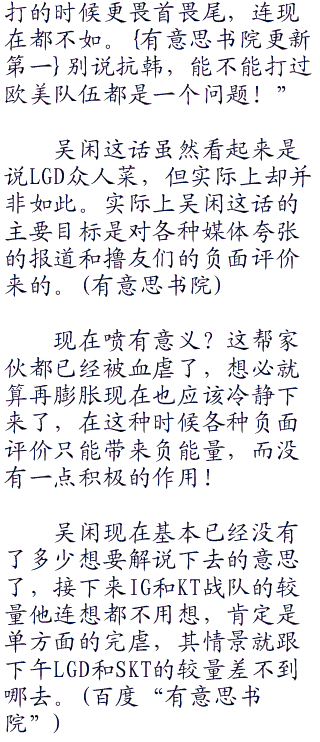 打的时候更畏首畏尾，连现
在都不如。{有意思书院更新
第一}别说抗韩，能不能打过
欧美队伍都是一个问题！”
吴闲这话虽然看起来是
说LGD众人菜，但实际上却并
非如此。实际上吴闲这话的
主要目标是对各种媒体夸张
的报道和撸友们的负面评价
来的。(有意思书院)
现在喷有意义？这帮家
伙都已经被血虐了，想必就
算再膨胀现在也应该冷静下
来了，在这种时候各种负面
评价只能带来负能量，而没
有一点积极的作用！
吴闲现在基本已经没有
了多少想要解说下去的意思
了，接下来IG和KT战队的较
量他连想都不用想，肯定是
单方面的完虐，其情景就跟
下午LGD和SKT的较量差不到
哪去。(百度“有意思书
院”)